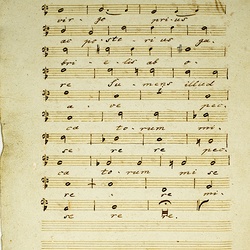 vir - go prius
ac po - ste - ri - us ga -
bri - e - lis ab o -
re Su - mens illud
a - ve pec -
ca - to - rum mi -
se re re pec -
ca to - rum mi se
re - re mi -
se re re.